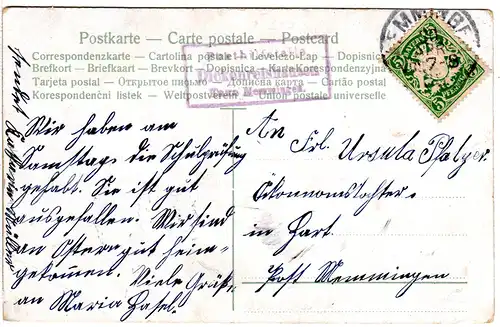 Postkarte – Carte postale – Postcard
Correspondenzkarte – Cartolina postale – Levelezö-Lap – Dopisnice
Brefkort – Briefkaart – Brevkort – Dopisnica – Karta Korespondencyjna
Tarjeta postal – Открытое письмо – Дописна карта – Cartão postal
Korespondenční lístek – Weltpostverein – Union postale universelle
MEMMINGE
BAYERN
Posthilfstelle
Taxe Memmingen
Wir haben am
Samstag die Schulprüfung
gehabt. Sie ist gut
ausgefallen. Wir sind
an Ostern gut heim-
gekommen. Viele Grüße
an Maria Hasel.
An
Frl. Ursula Pfalzer
Ökonomstochter
in Hart
Post Memmingen